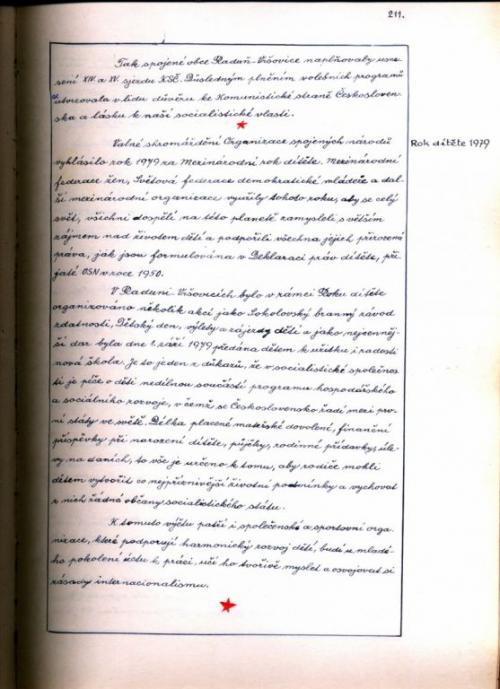 211.
Tak spojené obce Raduň-Vršovice naplňovaly usne-
sení XIV. a XV. sjezdu KSČ. Důsledným plněním volebních programů
utvrzovala v lidu důvěru ke Komunistické straně Českosloven-
ska a lásku k naší socialistické vlasti.
Valné shromáždění Organizace spojených národů
Rok dítěte 1979
vyhlásilo rok 1979 za Mezinárodní rok dítěte. Mezinárodní
federace žen, Světová federace demokratické mládeže a dal-
ší mezinárodní organizace využily tohoto roku, aby se celý
svět, všichni dospělí na této planetě zamysleli s větším
zájmem nad životem dětí a podpořili všechna jejich přirozená
práva, jak jsou formulována v Deklaraci práv dítěte, při-
jaté OSN v roce 1950.
V Raduni Vršovicích bylo v rámci Roku dítěte
organizováno několik akcí jako Sokolovský branný závod
zdatnosti, Dětský den, výlety a zájezdy dětí a jako nejcenněj-
ší dar byla dne 1. září 1979 předána dětem k užitku i radosti
nová škola. Je to jeden z důkazů, že v socialistické společnos-
ti je péče o děti nedílnou součástí programu hospodářského
a sociálního rozvoje, v čemž se Československo řadí mezi prv-
ní státy ve světě. Délka placené mateřské dovolené, finanční
příspěvky při narození dítěte, půjčky, rodinné přídavky, úle-
vy na daních, to vše je určeno k tomu, aby rodiče mohli
dětem vytvořit co nejpříznivější životní podmínky a vychovat
z nich řádné občany socialistického státu.
K tomuto výčtu patří i společenské a sportovní orga-
nizace, které podporují harmonický rozvoj dětí, budí u mladé-
ho pokolení úctu k práci, učí ho tvořivě myslet a osvojovat si
zásady internacionalismu.